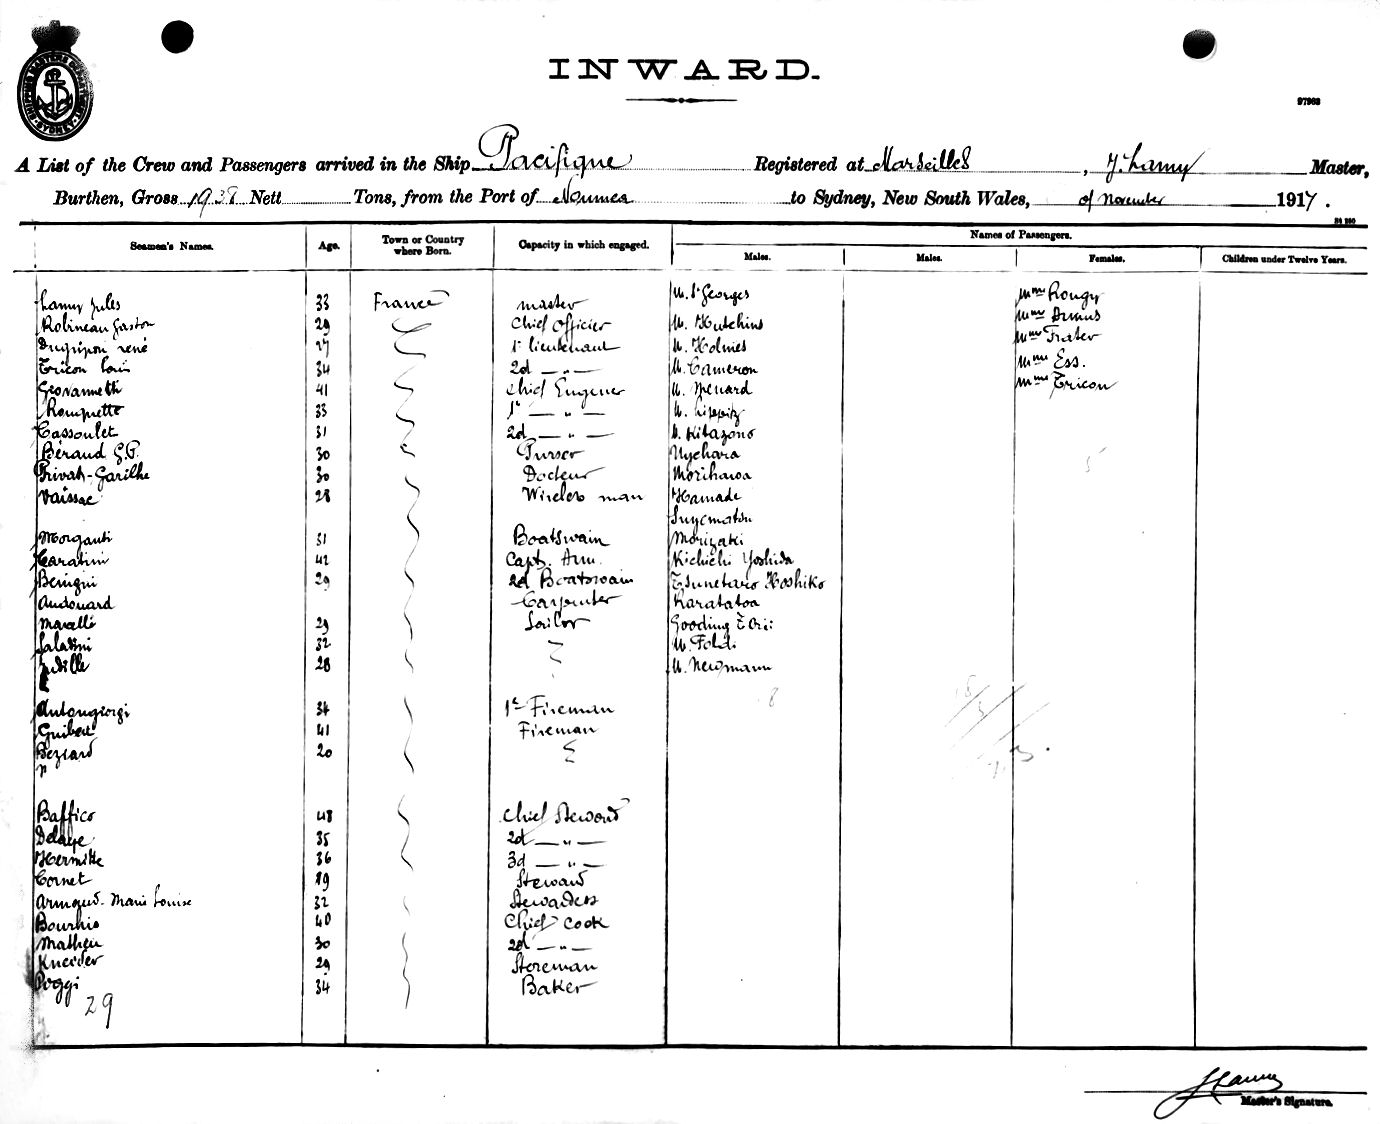 SHIPPING MASTERS DEPARTMENT SYDNEY
INWARD.
97963
A List of the Crew and Passengers arrived in the Ship Pacifique Registered at Marseilles, J. Lamy Master,
Burthen, Gross 1938 Nett Tons, from the Port of Noumea to Sydney, New South Wales, of November 1917.
Seamen's Names. Age. Town or Country where Born. Capacity in which engaged. Names of Passengers.
Males. Males. Females. Children under Twelve Years.
Lamy Jules 33 France master M. St Georges Mme Rougy
Robineau Gaston 29 Chief Officer M. Hutchins Mme
René 27 1r lieutenant M. Holmes Mme Frater
Tricon Louis 34 2d — „ — M. Cameron Mme Ess.
Geovannetti 41 Chief Engener M. Menard Mme Tricon
Rouquette 33 1r — „ — M.
Cassoulet 31 2d — „ — M. Kitazono
Béraud G.P. 30 Purser Uyehara
Privat-Garilhe 30 Docteur Morihawa
Vaissac 28 Wireless man Hamade
Suyematsu
Morganti 31 Boatswain Morizaki
Caratini 42 Capt. Arm. Kichichi Yoshida
Benigni 29 2d Boatswain Tsunetaro Hoshiko
Audouard Carpenter Karatatoa
29 Sailor Gooding
Saladini 32 M.
28 M. Newmann
8
5
Antongiorgi 34 1r Fireman
Guibert 41 Fireman
Beziard 20
Baffico 48 Chief Steward
Delaye 35 2d — „ —
Hermitte 36 3d — „ —
Cornet 19 Steward
Armand Marie Louise 32 Stewardess
Bourhis 40 Chief Cook
Matheu 30 2d — „ —
Kneider 29 Storeman
Poggi 34 Baker
29
J Lamy
Master's Signature.